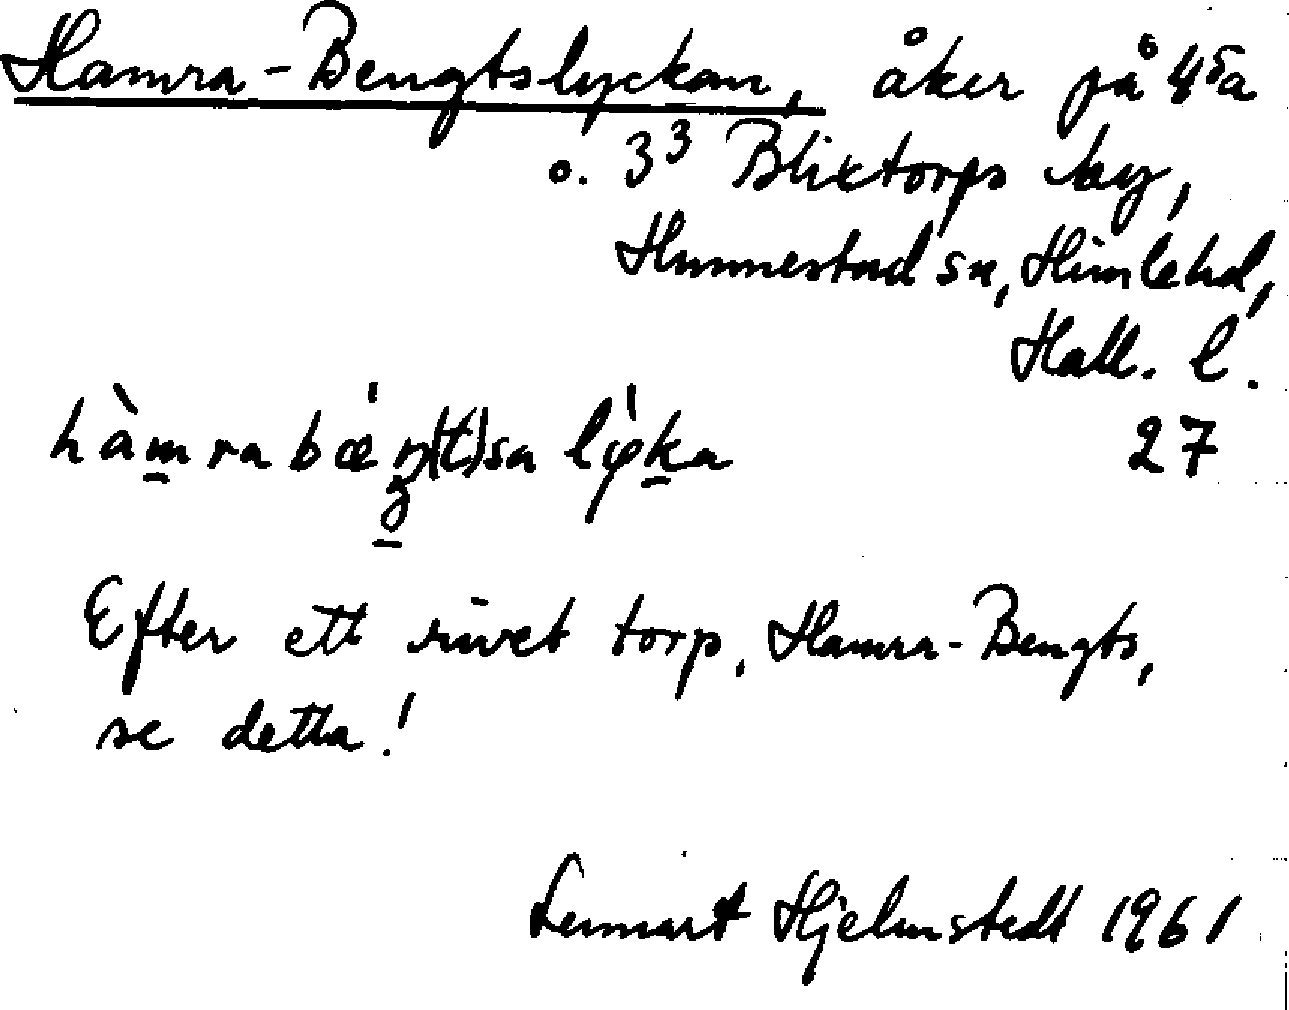 Hamra-Bengtslyckan, åker på 4⁵a
o. 3³ Blixtorps by,
Hunnestad sn, Himle hd,
Hall. l.
27
Efter ett rivet torp, Hamra-Bengts,
se detta!
Lennart Hjelmstedt 1961